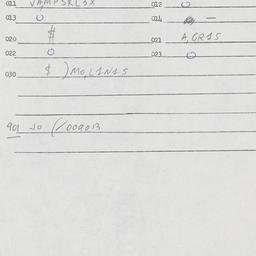 011 VAMPSRL3X 012 O
013 O 014 —
020 $ 021 A,GR1S
022 O 023 O
030 $ ) MO,L1N1S
901 10 (/009013